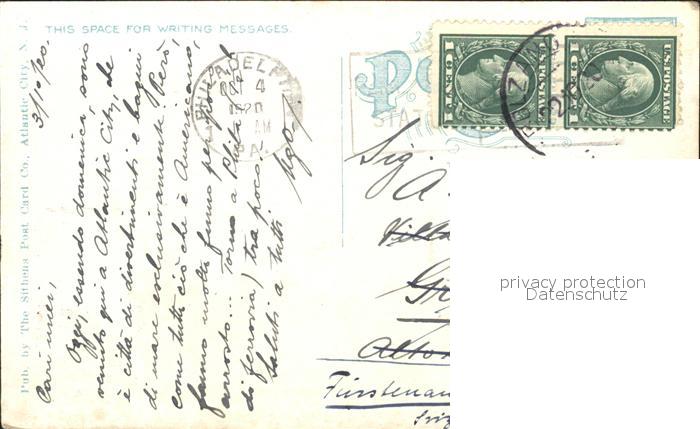 THIS SPACE FOR WRITING MESSAGES.
Pub. by The Sithens Post Card Co., Atlantic City, N. J.
3/10/20.
Cari miei,
Oggi, essendo domenica, sono
venuto qui a Atlantic City, che
è città di divertimenti e bagni
di mare esclusivamente. Però,
come tutto ciò che è Americano,
fanno molto fumo per poco
arrosto... Torno a Phila (2h
di ferrovia) tra poco.
Saluti a tutti
Ugo.
PHILADELPHIA
OCT 4
1920
AM
PA.
STAT
U.S. POSTAGE
1 CENT 1
U.S. POSTAGE
1 CENT 1
Sig.
A.
Villa
Gr
Alto
Fürstenau
Sviz
privacy protection
Datenschutz